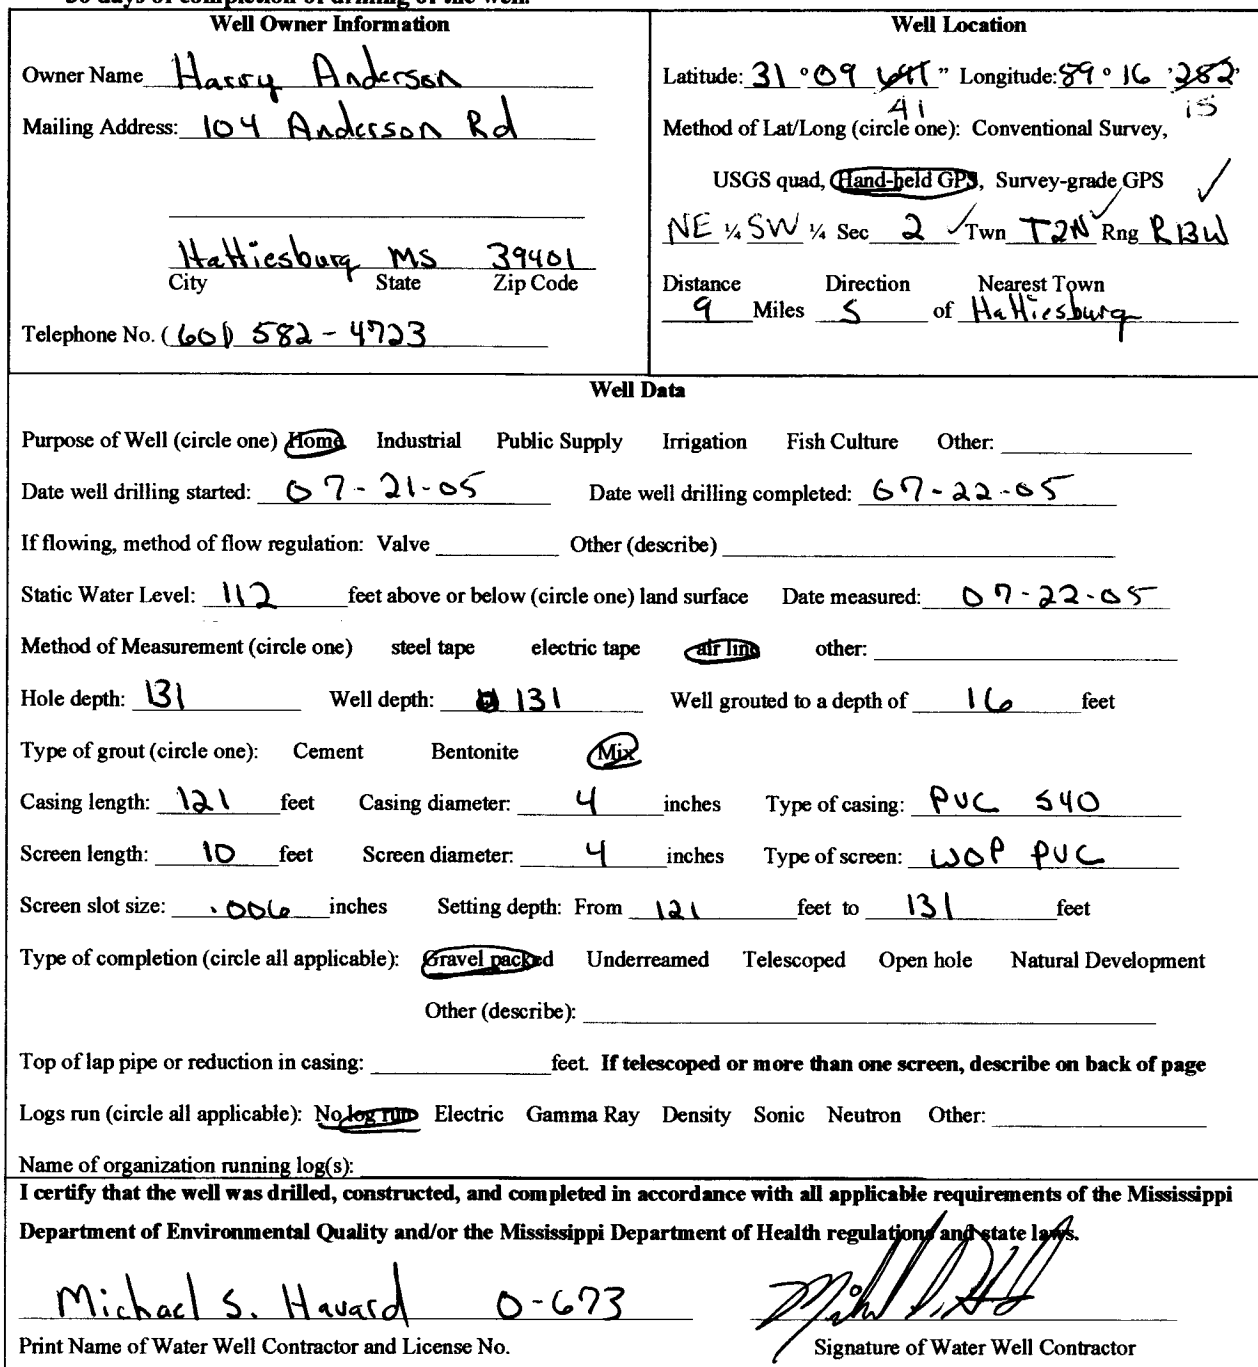 30 days of completion of drilling of the well.
Well Owner Information
Owner Name Harry Anderson
Mailing Address: 104 Anderson Rd
Hattiesburg MS 39401
City State Zip Code
Telephone No. (601) 582-4723
Well Location
Latitude: 31 ° 09 ' 641 " Longitude: 89 ° 16 ' 282 '
41 15
Method of Lat/Long (circle one): Conventional Survey,
USGS quad, Hand-held GPS, Survey-grade GPS
NE ¼ SW ¼ Sec 2 Twn T2N Rng R13W
Distance Direction Nearest Town
9 Miles S of Hattiesburg
Well Data
Purpose of Well (circle one) Home Industrial Public Supply Irrigation Fish Culture Other:
Date well drilling started: 07-21-05 Date well drilling completed: 07-22-05
If flowing, method of flow regulation: Valve Other (describe)
Static Water Level: 112 feet above or below (circle one) land surface Date measured: 07-22-05
Method of Measurement (circle one) steel tape electric tape air line other:
Hole depth: 131 Well depth: 131 Well grouted to a depth of 16 feet
Type of grout (circle one): Cement Bentonite Mix
Casing length: 121 feet Casing diameter: 4 inches Type of casing: PVC S40
Screen length: 10 feet Screen diameter: 4 inches Type of screen: WOP PVC
Screen slot size: .006 inches Setting depth: From 121 feet to 131 feet
Type of completion (circle all applicable): Gravel packed Underreamed Telescoped Open hole Natural Development
Other (describe):
Top of lap pipe or reduction in casing: feet. If telescoped or more than one screen, describe on back of page
Logs run (circle all applicable): No log run Electric Gamma Ray Density Sonic Neutron Other:
Name of organization running log(s):
I certify that the well was drilled, constructed, and completed in accordance with all applicable requirements of the Mississippi
Department of Environmental Quality and/or the Mississippi Department of Health regulations and state laws.
Michael S. Havard 0-673
Print Name of Water Well Contractor and License No. Signature of Water Well Contractor